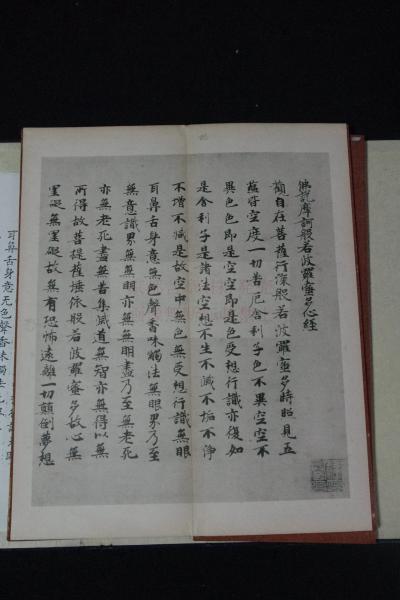 佛說摩訶般若波羅蜜多心經
觀自在菩薩行深般若波羅蜜多時照見五
蘊皆空度一切苦厄舍利子色不異空空不
異色色即是空空即是色受想行識亦復如
是舍利子是諸法空想不生不滅不垢不淨
不增不減是故空中無色無受想行識無眼
耳鼻舌身意無色聲香味觸法無眼界乃至
無意識界無無明亦無無明盡乃至無老死
亦無老死盡無苦集滅道無智亦無得以無
所得故菩提薩埵依般若波羅蜜多故心無
罣礙無罣礙故無有恐怖遠離一切顛倒夢想
耳鼻舌身意无色聲香味